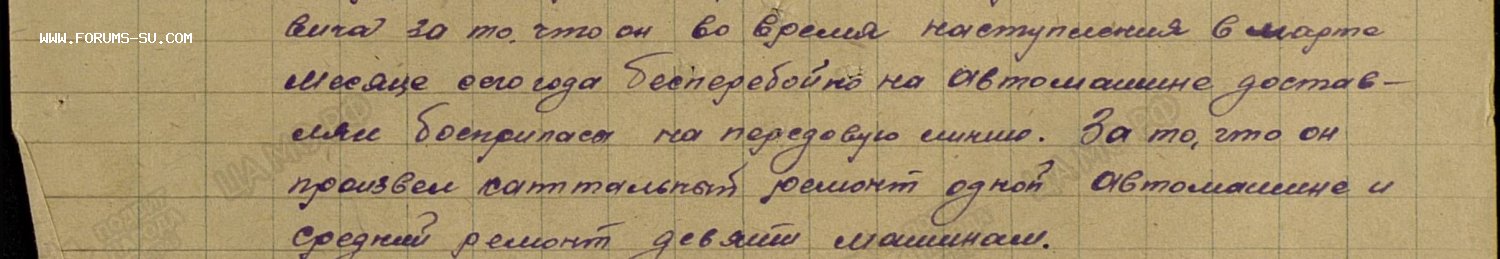 www.forums-su.com
вича за то, что он во время наступления в марте
месяце сего года бесперебойно на автомашине достав-
лял боеприпасы на передовую линию. За то, что он
произвел капитальный ремонт одной автомашине и
средний ремонт девяти машинам.